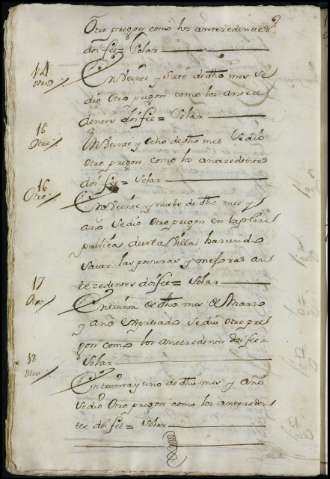 Otro pregon como los antecedentes
doi fee= Velar
14
Otro
En Dies y siete de dho mes se
dio Otro pregon como los ante
dentes doi fee= Velar
15
Otro
En Dies y Ocho de dho mes se dio
otro pregon como los antecedentes
doi fee= Velar
16
Otro
En Dies y nuebe de dho mes y
año se dio Otro pregon en la plaza
publica de esta Villa haciendo
saver las posturas y mejoras an
tecedentes doi fee= Velar
17
Otro
En treinta de dho mes de Marzo
y año se dio Otro pre
gon como los antecedentes doi fee
Velar
18
Otro
En treinta y uno de dho mes y año
se dio Otro pregon como los anteceden
tes doi fee= Velar